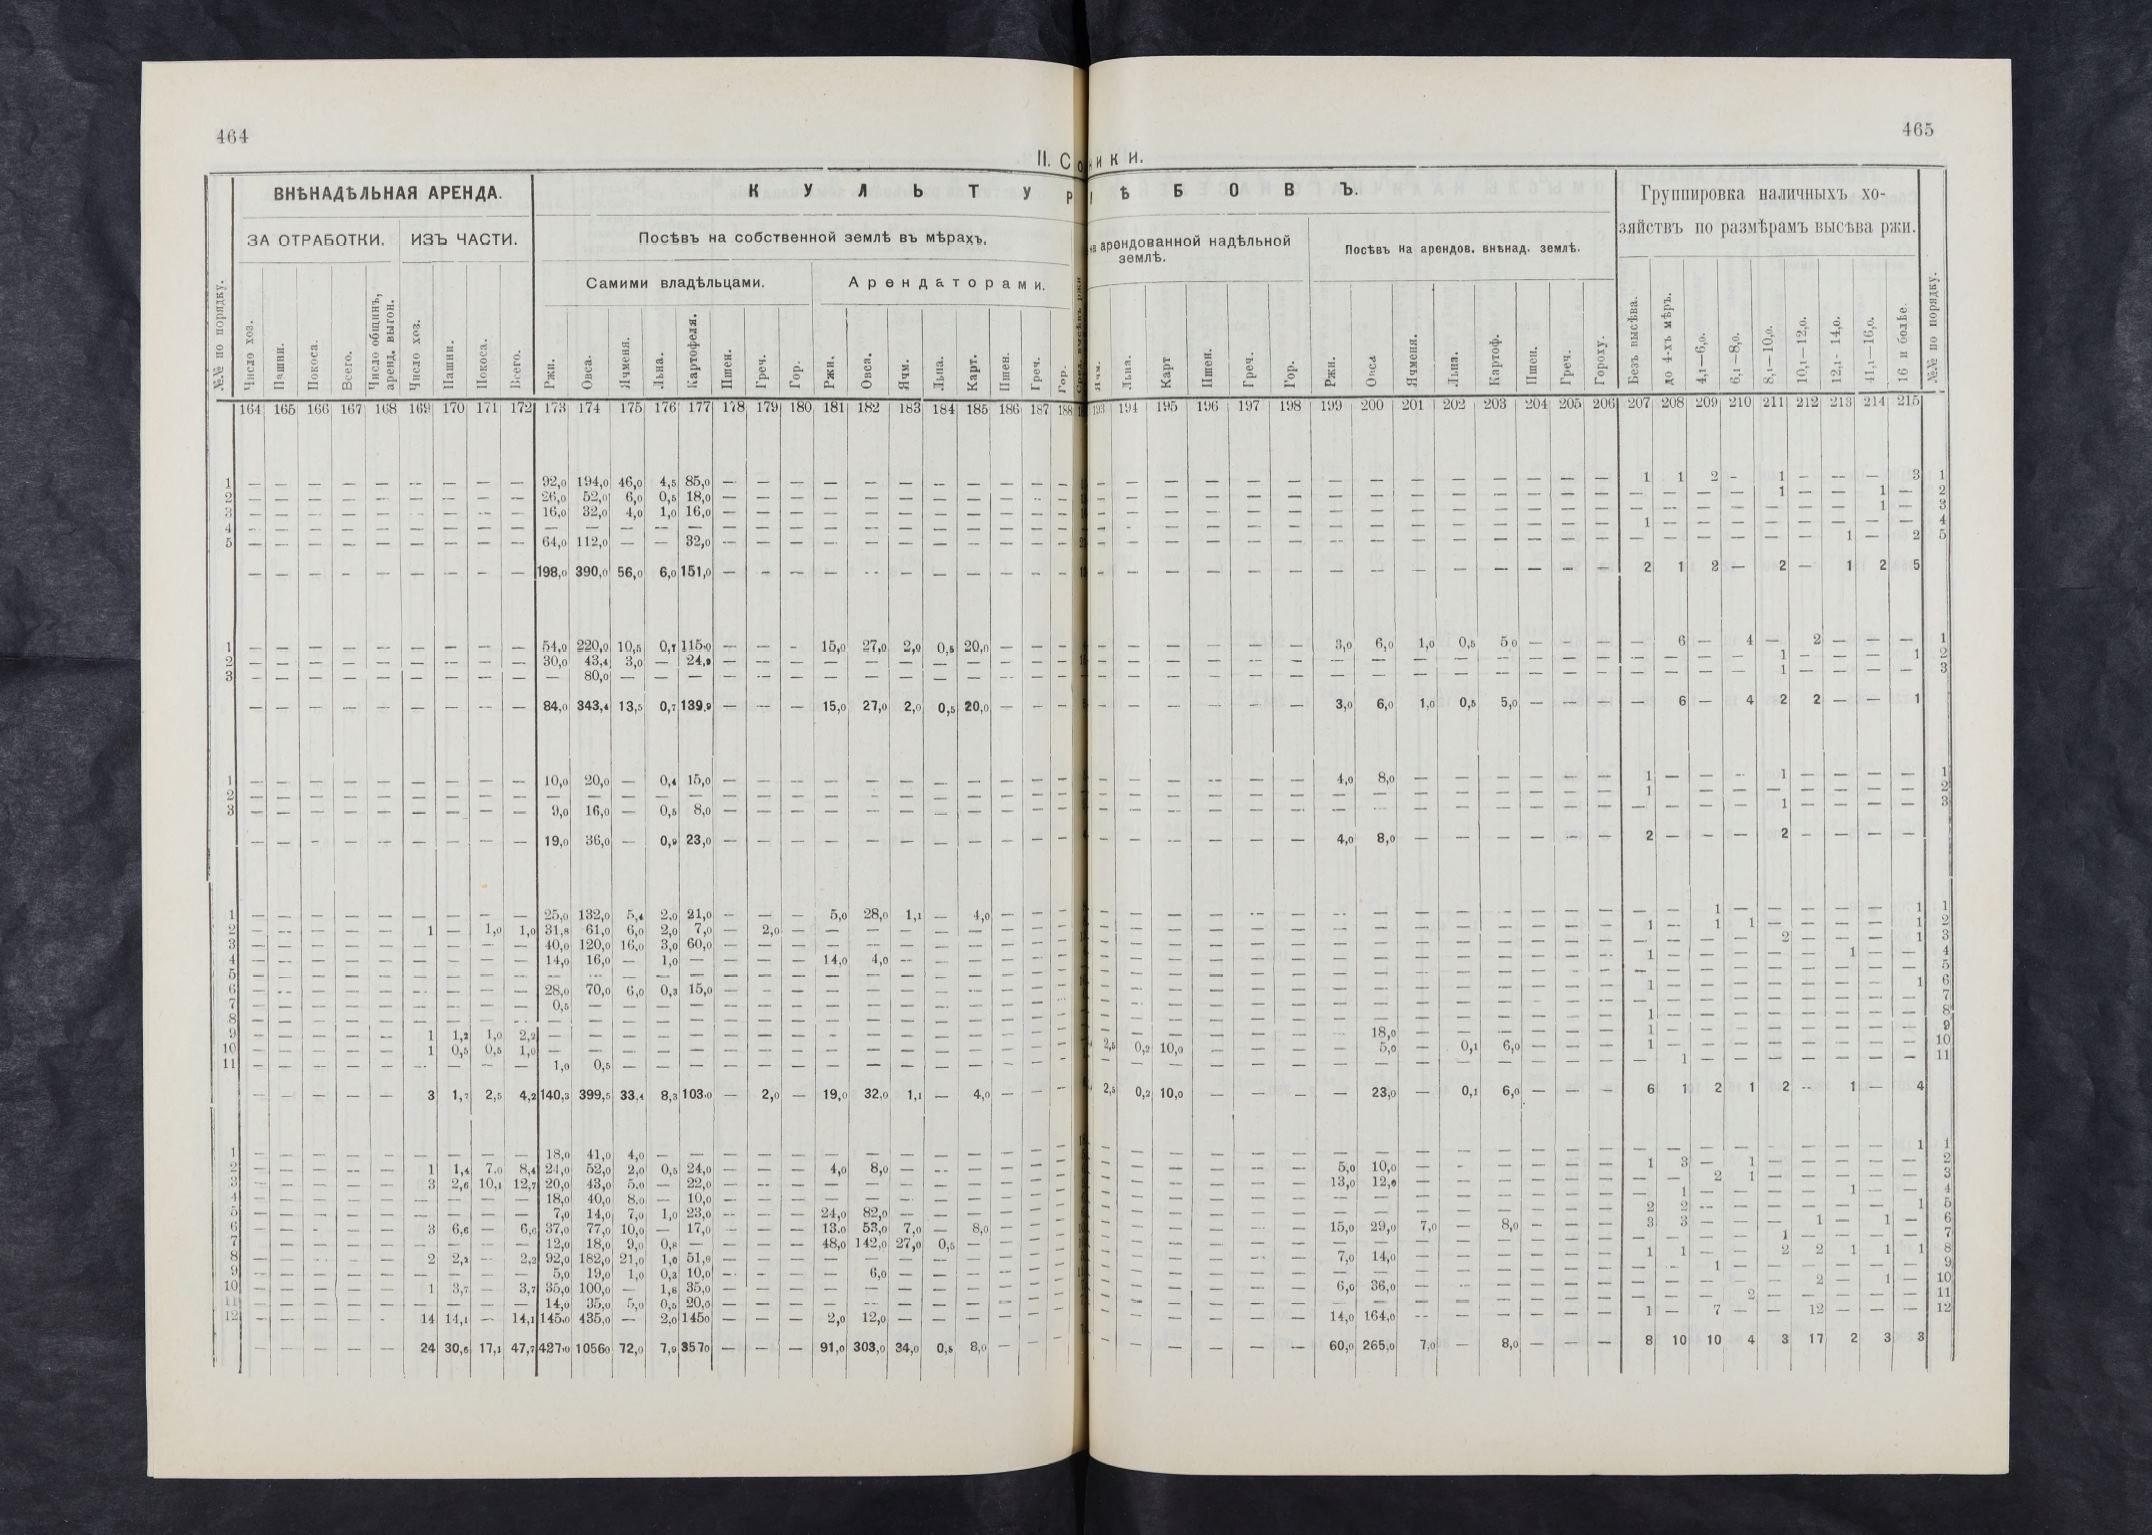 464
465
II. С
ики.
ВНѢНАДѢЛЬНАЯ АРЕНДА.
К У Л Ь Т У Р
Ѣ Б О В Ъ.
Группировка наличныхъ хо-
зяйствъ по размѣрамъ высѣва ржи.
ЗА ОТРАБОТКИ.
ИЗЪ ЧАСТИ.
Посѣвъ на собственной землѣ въ мѣрахъ.
арендованной надѣльной
землѣ.
Посѣвъ на арендов. внѣнад. землѣ.
Самими владѣльцами.
Арендаторами.
№№ по порядку.
Число хоз.
Пашни.
Покоса.
Всего.
Число общинъ,
аренд. выгон.
Число хоз.
Пашни.
Покоса.
Всего.
Ржи.
Овса.
Ячменя.
Льна.
Картофеля.
Пшен.
Греч.
Гор.
Ржи.
Овса.
Ячм.
Льна.
Карт.
Пшен.
Греч.
Гор.
Ячм.
Льна.
Карт
Пшен.
Греч.
Гор.
Ржи.
Овса
Ячменя.
Льна.
Картоф.
Пшен.
Греч.
Гороху.
Безъ высѣва.
до 4-хъ мѣръ.
4,1—6,0.
6,1—8,0.
8,1—10,0.
10,1—12,0.
12,1- 14,0.
41,1—16,0.
16 и болѣе.
№№ по порядку.
164 165 166 167 168 169 170 171 172 173 174 175 176 177 178 179 180 181 182 183 184 185 186 187 188
193 194 195 196 197 198 199 200 201 202 203 204 205 206 207 208 209 210 211 212 213 214 215
1 — — — — — — — — — 92,0 194,0 46,0 4,5 85,0 — — — — — — — — — — —
— — — — — — — — — — — — — — 1 1 2 - 1 — — — 3 1
2 — — — — — — — — — 26,0 52,0 6,0 0,5 18,0 — — — — — — — — — — —
— — — — — — — — — — — — — — — — — — 1 — — 1 — 2
3 — — — — — — — — — 16,0 32,0 4,0 1,0 16,0 — — — — — — — — — — —
— — — — — — — — — — — — — — — — — — — — — 1 — 3
4 — — — — — — — — — — — — — — — — — — — — — — — — —
— — — — — — — — — — — — — — 1 — — — — — — — — 4
5 — — — — — — — — — 64,0 112,0 — — 32,0 — — — — — — — — — — —
— — — — — — — — — — — — — — — — — — — — 1 — 2 5
— — — — — — — — — 198,0 390,0 56,0 6,0 151,0 — — — — — — — — — — —
— — — — — — — — — — — — — — 2 1 2 — 2 — 1 2 5
1 — — — — — — — — — 54,0 220,0 10,5 0,7 115,0 — — - 15,0 27,0 2,0 0,5 20,0 — — —
— — — — — — 3,0 6,0 1,0 0,5 5 0 — — — — 6 — 4 — 2 — — — 1
2 — — — — — — — — — 30,0 43,4 3,0 — 24,9 — — — — — — — — — — —
— — — — — — — — — — — — — — — — — — 1 — — — 1 2
3 — — — — — — — — — — 80,0 — — — — — — — — — — — — — —
— — — — — — — — — — — — — — — — — — 1 — — — — 3
— — — — — — — — — 84,0 343,4 13,5 0,7 139,9 — — — 15,0 27,0 2,0 0,5 20,0 — — —
— — — — — — 3,0 6,0 1,0 0,5 5,0 — — — — 6 — 4 2 2 — — 1
1 — — — — — — — — — 10,0 20,0 — 0,4 15,0 — — — — — — — — — — —
— — — — — — 4,0 8,0 — — — — — — 1 — — — 1 — — — — 1
2 — — — — — — — — — — — — — — — — — — — — — — — — —
— — — — — — — — — — — — — — 1 — — — — — — — — 2
3 — — — — — — — — — 9,0 16,0 — 0,5 8,0 — — — — — — — — — — —
— — — — — — — — — — — — — — — — — — 1 — — — — 3
— — — — — — — — — 19,0 36,0 — 0,9 23,0 — — — — — — — — — — —
— — — — — — 4,0 8,0 — — — — — — 2 — — — 2 — — — —
1 — — — — — — — — — 25,0 132,0 5,4 2,0 21,0 — — — 5,0 28,0 1,1 — 4,0 — — —
— — — — — — — — — — — — — — — — 1 — — — — — 1 1
2 — — — — — 1 — 1,0 1,0 31,8 61,0 6,0 2,0 7,0 — 2,0 — — — — — — — — —
— — — — — — — — — — — — — — 1 — 1 1 — — — — 1 2
3 — — — — — — — — — 40,0 120,0 16,0 3,0 60,0 — — — — — — — — — — —
— — — — — — — — — — — — — — — — — — 2 — — — 1 3
4 — — — — — — — — — 14,0 16,0 — 1,0 — — — — 14,0 4,0 — — — — — —
— — — — — — — — — — — — — — 1 — — — — — 1 — — 4
5 — — — — — — — — — — — — — — — — — — — — — — — — —
— — — — — — — — — — — — — — — — — — — — — — — 5
6 — — — — — — — — — 28,0 70,0 6,0 0,3 15,0 — — — — — — — — — — —
— — — — — — — — — — — — — — 1 — — — — — — — 1 6
7 — — — — — — — — — 0,5 — — — — — — — — — — — — — — —
— — — — — — — — — — — — — — — — — — — — — — — 7
8 — — — — — — — — — — — — — — — — — — — — — — — — —
— — — — — — — — — — — — — — 1 — — — — — — — — 8
9 — — — — — 1 1,2 1,0 2,2 — — — — — — — — — — — — — — — —
— — — — — — 18,0 — — — — — — 1 — — — — — — — — 9
10 — — — — — 1 0,5 0,5 1,0 — — — — — — — — — — — — — — — —
2,5 0,2 10,0 — — — 5,0 — 0,1 6,0 — — — 1 — — — — — — — — 10
11 — — — — — — — — — 1,0 0,5 — — — — — — — — — — — — — —
— — — — — — — — — — — — — — — 1 — — — — — — — 11
— — — — — 3 1,7 2,5 4,2 140,3 399,5 33,4 8,3 103,0 — 2,0 — 19,0 32,0 1,1 — 4,0 — — —
2,5 0,2 10,0 — — — — 23,0 — 0,1 6,0 — — — 6 1 2 1 2 — 1 — 4
1 — — — — — — — — — 18,0 41,0 4,0 — — — — — — — — — — — — —
— — — — — — — — — — — — — — — — — — — — — — 1 1
2 — — — — — 1 1,4 7,0 8,4 24,0 52,0 2,0 0,5 24,0 — — — 4,0 8,0 — — — — — —
— — — — — — 5,0 10,0 — — — — — — 1 3 — 1 — — — — — 2
3 — — — — — 3 2,6 10,1 12,7 20,0 43,0 5,0 — 22,0 — — — — — — — — — — —
— — — — — — 13,0 12,0 — — — — — — — — 2 1 — — — — — 3
4 — — — — — — — — — 18,0 40,0 8,0 — 10,0 — — — — — — — — — — —
— — — — — — — — — — — — — — — 1 — — — — 1 — — 4
5 — — — — — — — — — 7,0 14,0 7,0 1,0 23,0 — — — 24,0 82,0 — — — — — —
— — — — — — — — — — — — — — 2 2 — — — — — — 1 5
6 — — — — — 3 6,6 — 6,6 37,0 77,0 10,0 — 17,0 — — — 13,0 53,0 7,0 — 8,0 — — —
— — — — — — 15,0 29,0 7,0 — 8,0 — — — 3 3 — — — 1 — 1 — 6
7 — — — — — — — — — 12,0 18,0 9,0 0,8 — — — — 48,0 142,0 27,0 0,5 — — — —
— — — — — — — — — — — — — — — — — — 1 — — — — 7
8 — — — — — 2 2,2 — 2,2 92,0 182,0 21,0 1,0 51,0 — — — — — — — — — — —
— — — — — — 7,0 14,0 — — — — — — 1 1 — — 2 2 1 1 1 8
9 — — — — — — — — — 5,0 19,0 1,0 0,3 10,0 — — — — 6,0 — — — — — —
— — — — — — — — — — — — — — — — 1 — — — — — — 9
10 — — — — — 1 3,7 — 3,7 35,0 100,0 — 1,8 35,0 — — — — — — — — — — —
— — — — — — 6,0 36,0 — — — — — — — — — — — 2 — 1 — 10
11 — — — — — — — — — 14,0 35,0 5,0 0,5 20,5 — — — — — — — — — — —
— — — — — — — — — — — — — — — — — 2 — — — — — 11
12 — — — — — 14 14,1 — 14,1 145,0 435,0 — 2,0 1450 — — — 2,0 12,0 — — — — — —
— — — — — — 14,0 164,0 — — — — — — 1 — 7 — — 12 — — — 12
— — — — 24 30,6 17,1 47,7 427,0 10560 72,0 7,9 3570 — — — 91,0 303,0 34,0 0,5 8,0 — — —
— — — — — — 60,0 265,0 7,0 — 8,0 — — — 8 10 10 4 3 17 2 3 3